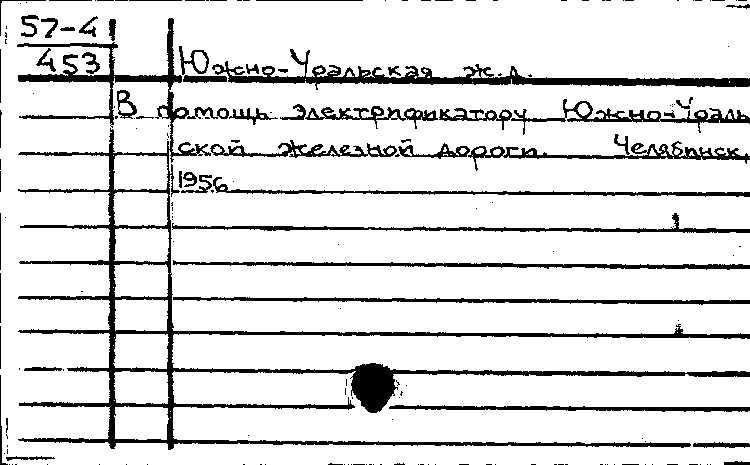 57-4
453
Южно-Уральская ж.д.
В помощь электрификатору Южно-Ураль
ской железной дороги. Челябинск,
1956